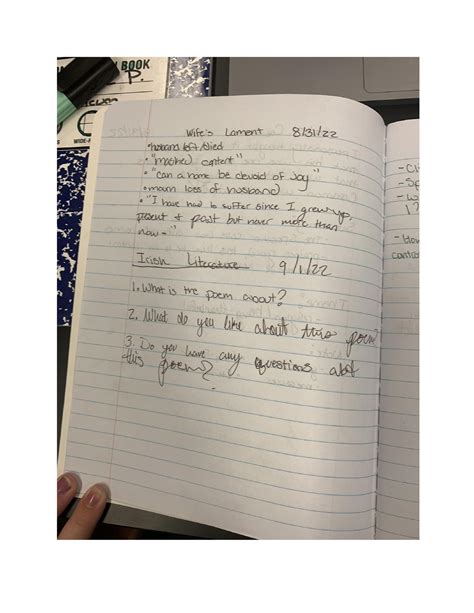 BOOK
P.
WIDE-
Wife's Lament 8/31/22
• husband left/died
• "masked content"
• "can a home be devoid of Joy"
• mourn loss of husband
• "I have had to suffer since I grew up,
present & past but never more than
now-"
Irish Literature 9/1/22
1. What is the poem about?
2. What do you like about this poem?
3. Do you have any questions about
this poem?
- Cl
- Sp
- W
1?
- How